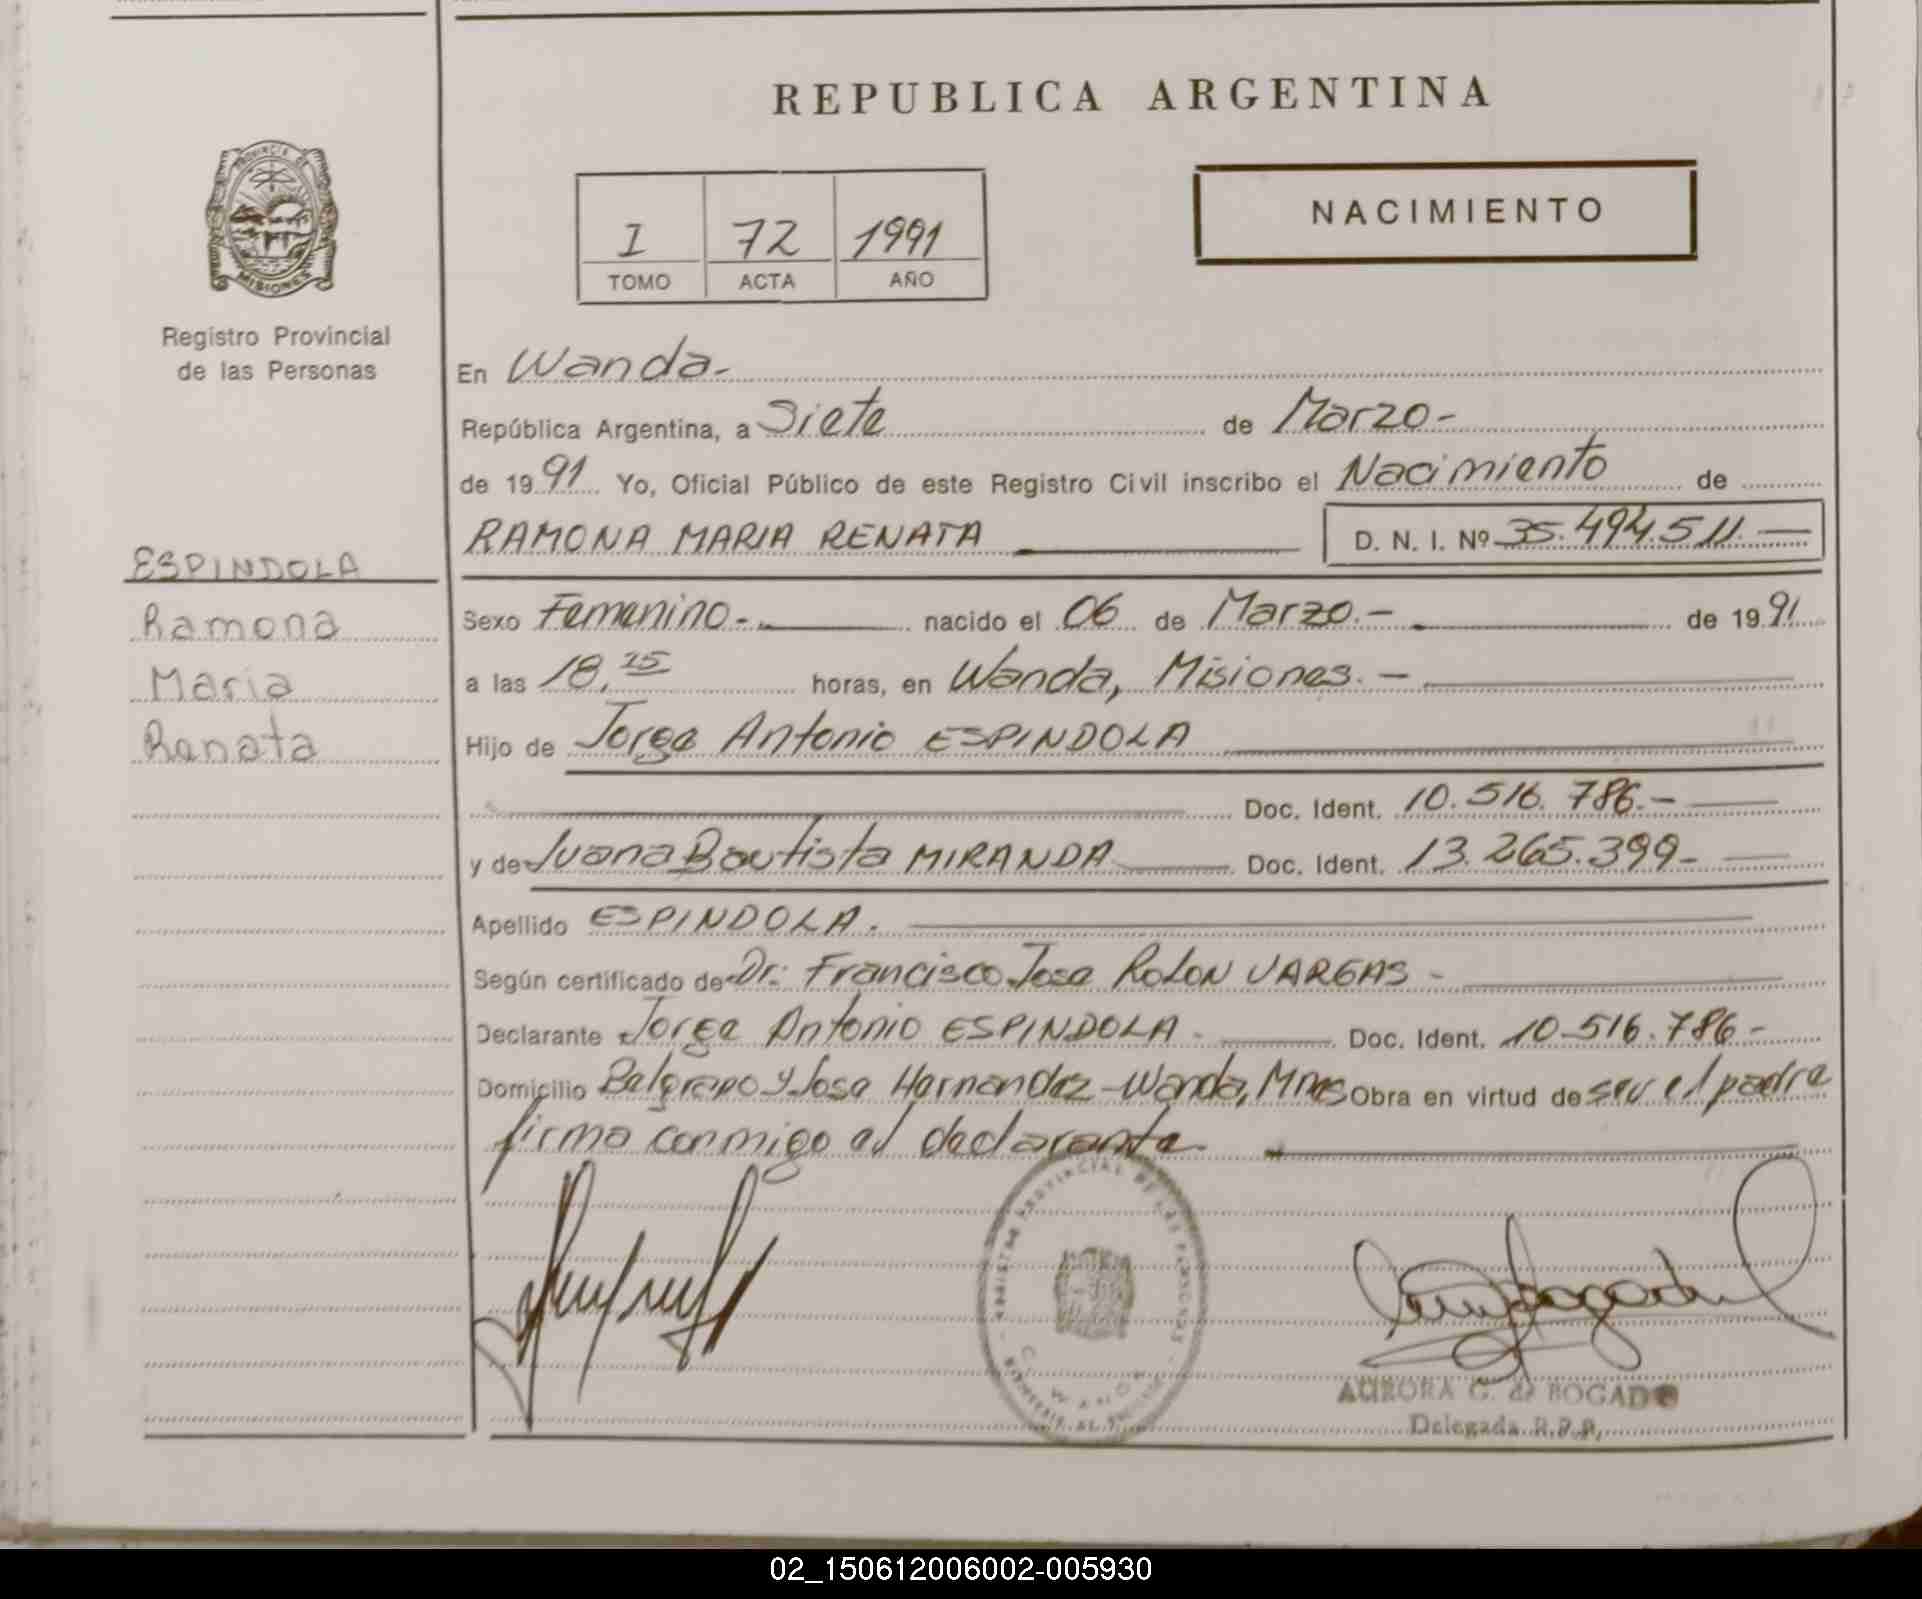 REPUBLICA ARGENTINA
PROVINCIA DE
MISIONES
Registro Provincial
de las Personas
I 72 1991
TOMO ACTA AÑO
NACIMIENTO
En Wanda.-
República Argentina, a Siete de Marzo-
de 1991 Yo, Oficial Público de este Registro Civil inscribo el Nacimiento de
RAMONA MARIA RENATA D. N. I. Nº 35.494.511.-
ESPINDOLA
Ramona
Maria
Renata
Sexo Femenino.- nacido el 06 de Marzo.- de 1991
a las 18,15 horas, en Wanda, Misiones.-
Hijo de Jorge Antonio ESPINDOLA
Doc. Ident. 10.516.786.-
y de Juana Bautista MIRANDA Doc. Ident. 13.265.399-
Apellido ESPINDOLA.
Según certificado de Dr: Francisco Jose ROLON VARGAS-
Declarante Jorge Antonio ESPINDOLA- Doc. Ident. 10-516.786-
Domicilio Belgrano y Jose Hernandez-Wanda, Mnes Obra en virtud de ser el padre
firma conmigo el declarante.
REGISTRO PROVINCIAL DE LAS PERSONAS
WANDA
AURORA G. de BOGADO
Delegada R.P.P.
02_150612006002-005930